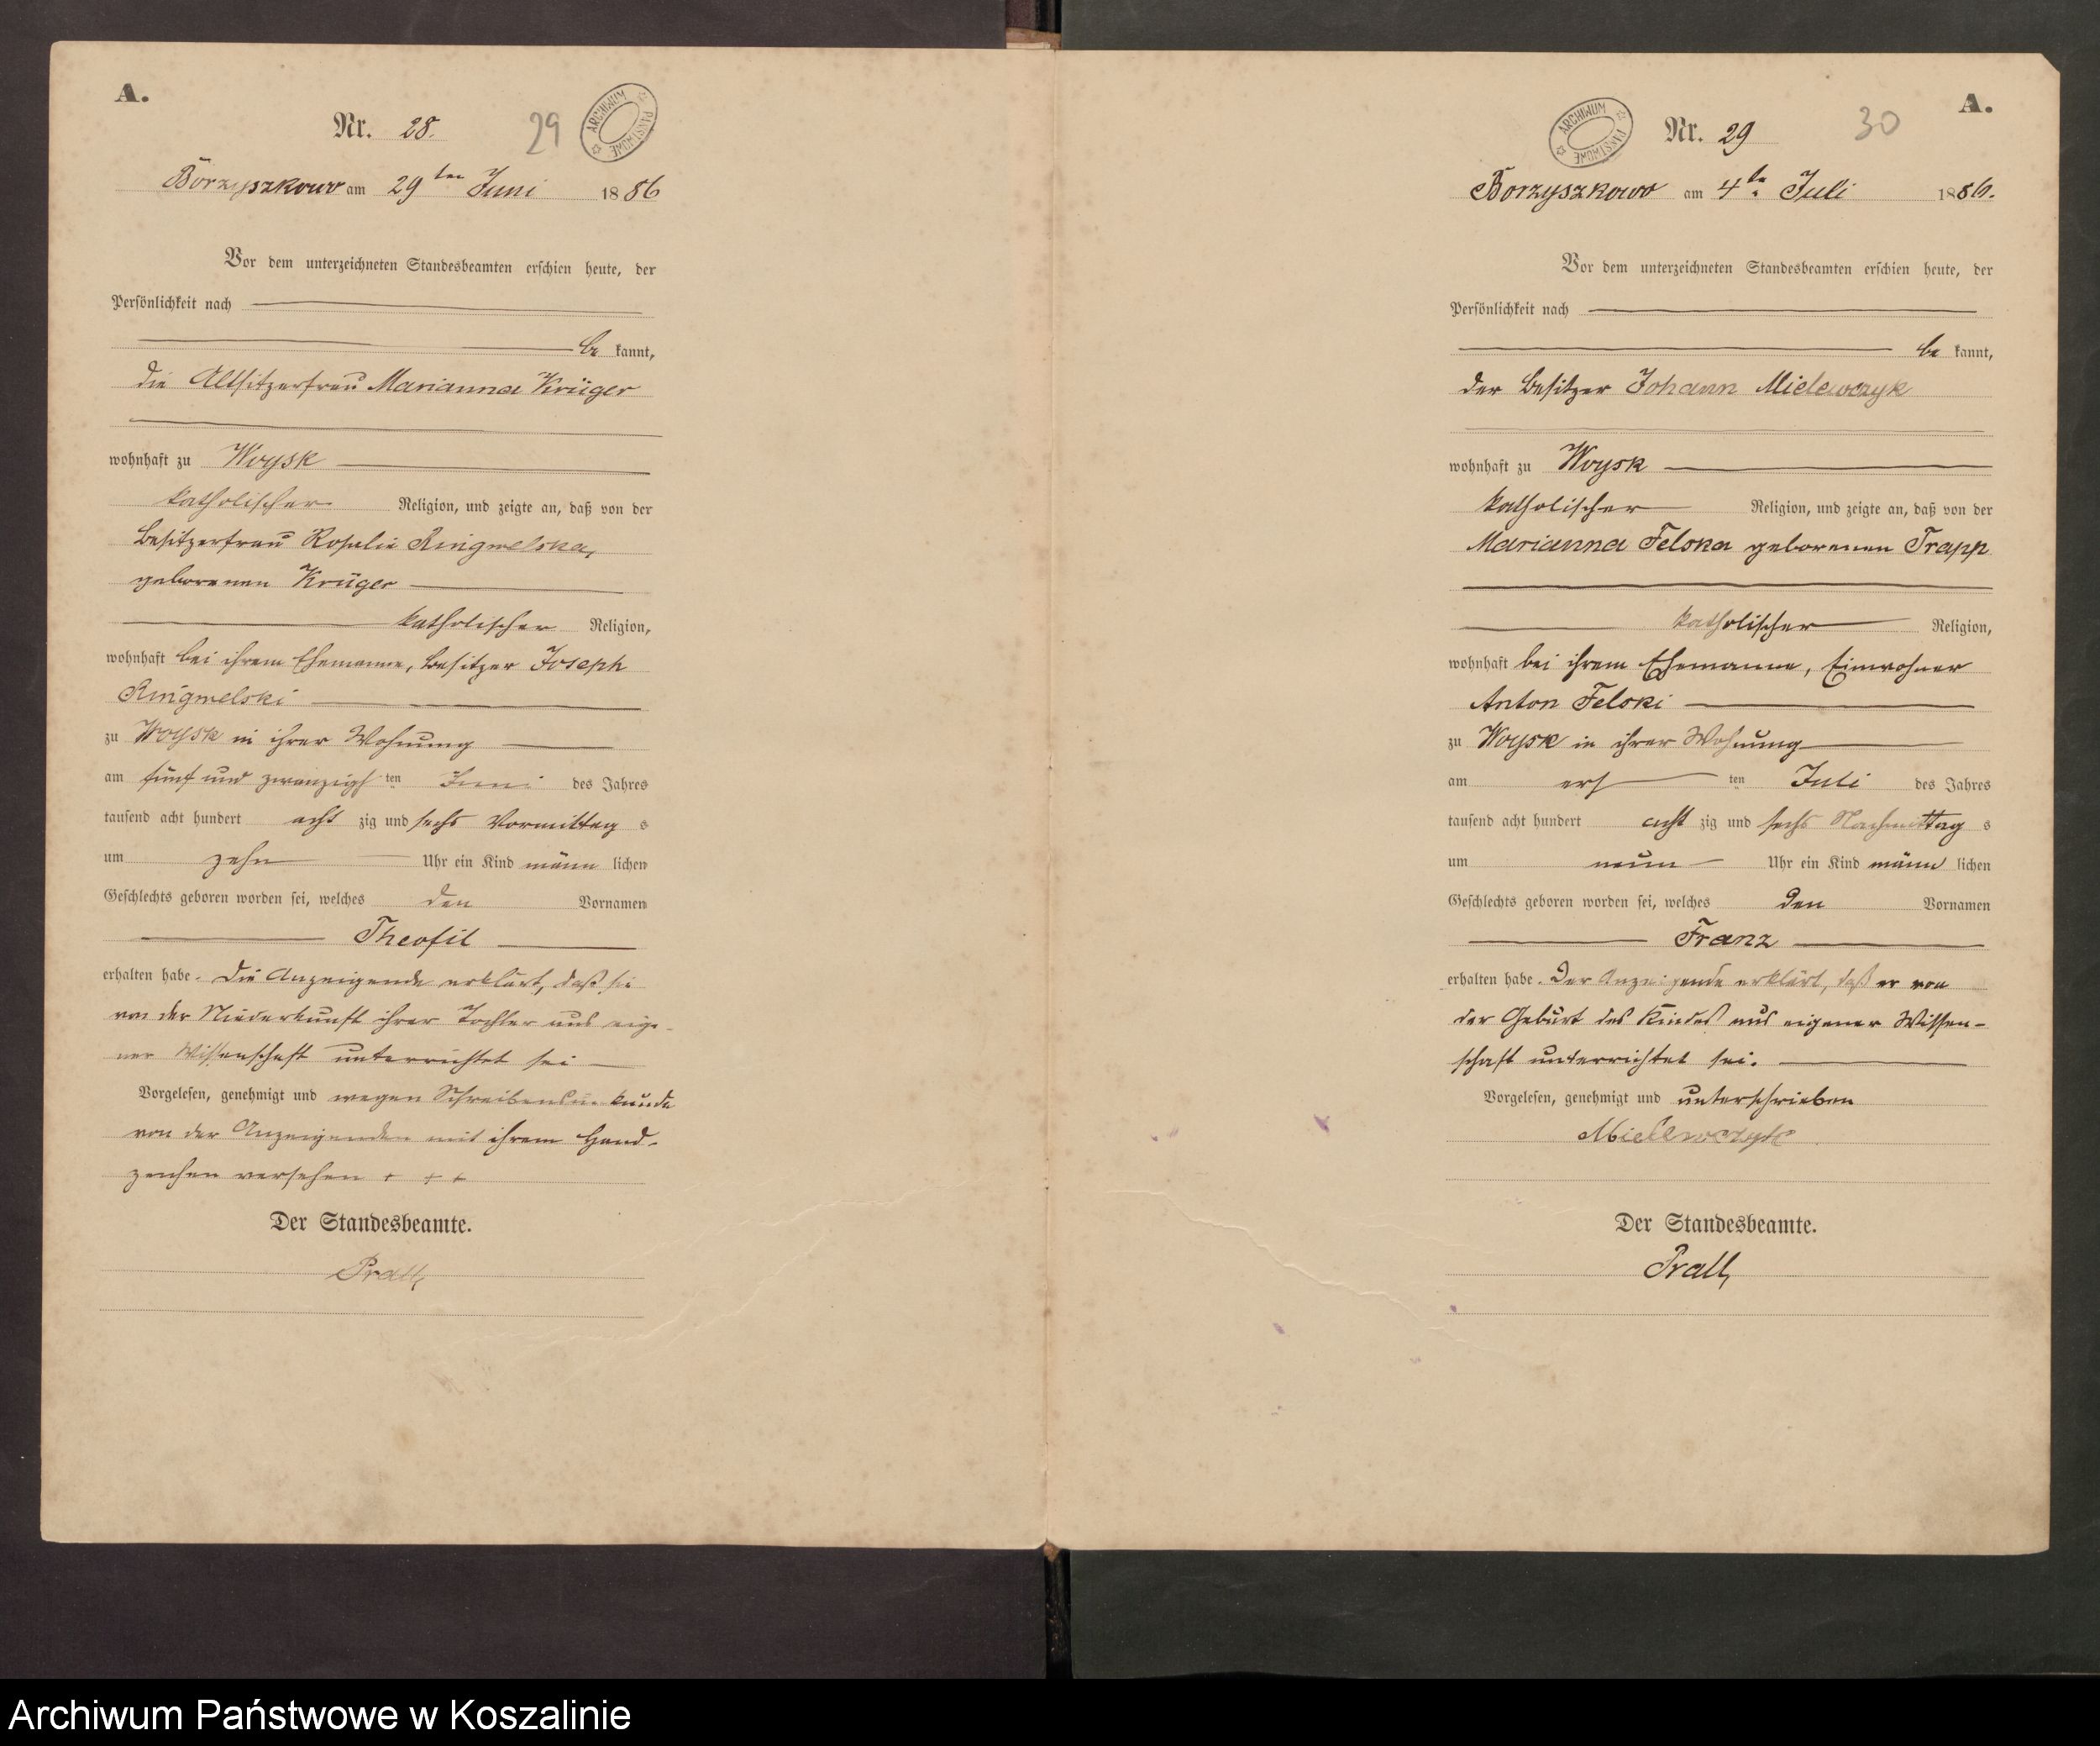 A.
Nr. 28.
29
ARCHIWUM PAŃSTWOWE
Borzyszkowo am 29ten Juni 1886
Vor dem unterzeichneten Standesbeamten erschien heute, der
Persönlichkeit nach
be kannt,
die Altsitzerfrau Marianna Krüger
wohnhaft zu Woysk
katholischer Religion, und zeigte an, daß von der
Besitzerfrau Rosalie
geborenen Krüger
katholischer Religion,
wohnhaft bei ihrem Ehemanne, Besitzer Joseph
zu Woysk in ihrer Wohnung
am fünf und zwanzigsten Juni des Jahres
tausend acht hundert acht zig und sechs Vormittag s
um zehn Uhr ein Kind männ lichen
Geschlechts geboren worden sei, welches den Vornamen
Theofil
erhalten habe. Die Anzeigende erklärt, daß sie
von der Niederkunft ihrer Tochter aus eige-
ner Wissenschaft unterrichtet sei
Vorgelesen, genehmigt und wegen Schreibensunkunde
von der Anzeigenden mit ihrem Hand-
zeichen versehen + + +
Der Standesbeamte.
Prall
A.
ARCHIWUM PAŃSTWOWE
Nr. 29
30
Borzyszkowo am 4ten Juli 1886.
Vor dem unterzeichneten Standesbeamten erschien heute, der
Persönlichkeit nach
be kannt,
der Besitzer Johann Mielewczyk
wohnhaft zu Woysk
katholischer Religion, und zeigte an, daß von der
Marianna Felska geborenen Trapp
katholischer Religion,
wohnhaft bei ihrem Ehemanne, Einwohner
Anton Felski
zu Woysk in ihrer Wohnung
am ers ten Juli des Jahres
tausend acht hundert acht zig und sechs Nachmittag s
um neun Uhr ein Kind männ lichen
Geschlechts geboren worden sei, welches den Vornamen
Franz
erhalten habe. Der Anzeigende erklärt, daß er von
der Geburt des Kindes aus eigener Wissen-
schaft unterrichtet sei.
Vorgelesen, genehmigt und unterschrieben
Mielewczyk
Der Standesbeamte.
Prall
Archiwum Państwowe w Koszalinie